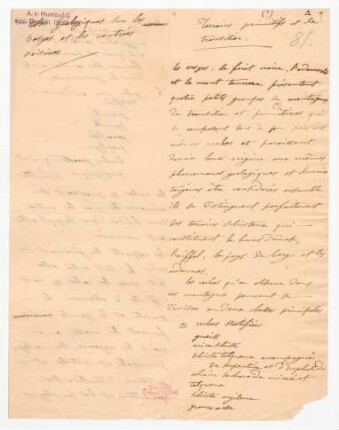 A. v. Humboldt
géologiques sur les
Vosges et les contrées
voisines
(1)
Terrains primitifs et de
transition.
81.
Les vosges, la forêt noire, l'Odenwald
et le mont tonnerre présentent
quatre petits groupes de montagnes
de transition et primitives qui
se composent tous à peu près des
mêmes roches et paraissent
devoir leur origine aux mêmes
phénomènes géologiques et devoir
toujours être considérés ensemble
ils se distinguent parfaitement
des terrains schisteux qui
constituent le hundsrück,
l'eiffel, le pays de berg et les
ardennes.
Les roches qu'on observe dans
ces montagnes peuvent se
diviser en deux classes principales
roches stratifiées
gneiss
micaschiste
schiste talqueux accompagné
de serpentine et d'euphotide
calcaire
talqueux
schiste argileux
grauwacke